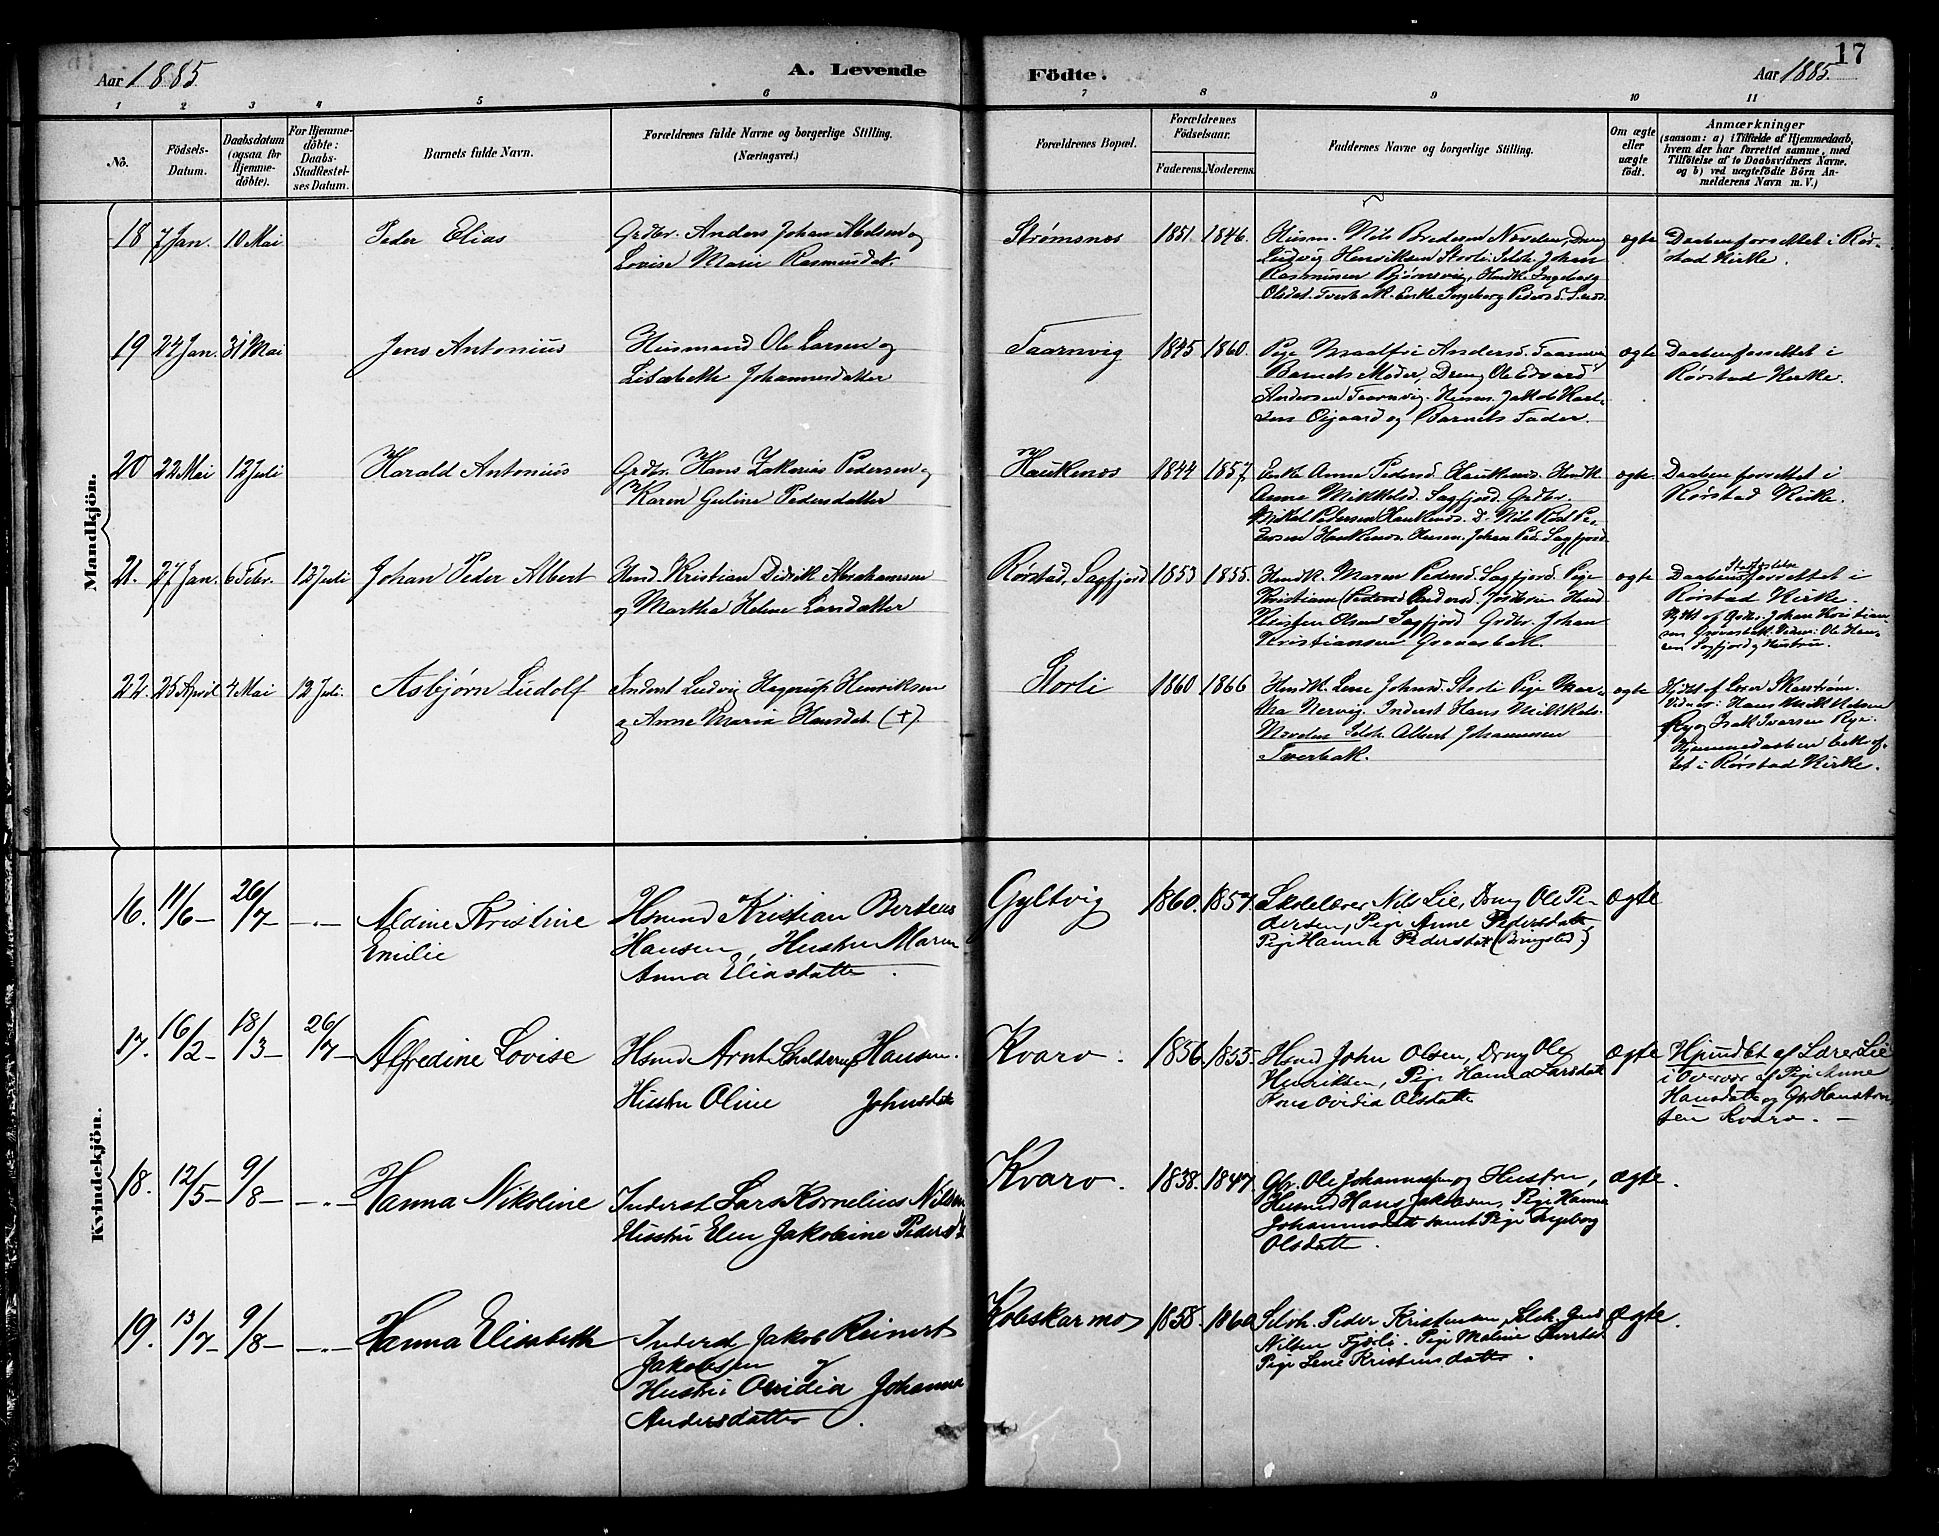 17
Aar 1885.
A. Levende
Födte.
Aar 1885.
1 2 3 4 5 6 7 8 9 10 11
No.
Födsels-
Datum.
Daabsdatum
(ogsaa for
Hjemme-
döbte).
For Hjemme-
döbte:
Daabs-
Stadfæstel-
ses Datum.
Barnets fulde Navn.
Forældrenes fulde Navne og borgerlige Stilling.
(Næringsvei.)
Forældrenes Bopæl.
Forældrenes
Födselsaar.
Faderens. Moderens.
Faddernes Navne og borgerlige Stilling.
Om ægte
eller
uægte
födt.
Anmærkninger
(saasom: a) i Tilfælde af Hjemmedaab,
hvem der har forrettet samme, med
Tilföielse af to Daabsvidners Navne.
og b) ved uægtefödte Börn An-
melderens Navn m. V.)
Mandkjön.
18 7 Jan. 10 Mai
Peder Elias
Grdbr. Anders Johan Abelsen og
Lovise Marie Rasmusdat.
Strømsnes 1851. 1846.
Husm. Nils Bredesen Novelen, Dreng
Ludvig Henriksen Storli. Selvh. Johan
Rasmussen Bjørnsvig, Hustk. Ingeborg
Olsdat. Tverbak. Enke Ingeborg Pedersd.
ægte
Daaben forrettet i Rør-
stad Kirke.
19 24 Jan. 31 Mai
Jens Antonius
Husmand Ole Larsen og
Lisabeth Johannesdatter
Taarnvig 1845 1860.
Pige Maalfri Andersd. Taarnvig
Barnets Moder, Dreng Ole Edvard
Andersen Taarnvig. Husm. Jakob
Øigaard og Barnets Fader.
ægte
Daaben forrettet i
Rørstad Kirke.
20 22 Mai 12 Juli
Harald Antonius
Grdbr. Hans Zakarias Pedersen og
Karen Guline Pedersdatter
Haukenes 1844 1857.
Enke Anne Pedersd. Haukenes. Hustk.
Anne Mikkelsd. Sagfjord. Grdbr.
Mikal Pedersen Haukenes. D. Nils Røst Pe-
dersen Haukenes. Husm. Johan Ped. Sagfjord
ægte
Daaben forrettet i
Rørstad Kirke.
21. 27 Jan. 6 Febr. 12 Juli
Johan Peder Albert
Husm. Kristian Didrik Abrahamsen
og Martha Helene Larsdatter
Rørstad, Sagfjord 1853 1855.
Hustk. Maren Pedersd. Sagfjord. Pige
Kristiane Andersd.
Olsen Sagfjord Grdbr. Johan
Kristiansen Grønaasbak.
ægte
Daabens Stadfæstelse forrettet i
Rørstad Kirke.
Hjdt af Grdbr. Johan Kristian-
sen Grønaasbak. Vidner: Ole Han-
sen Sagfjord og Hustru.
22. 25 April 4 Mai 12 Juli.
Asbjørn Ludolf
Inderst Ludvig Hagerup Henriksen
og Anne Maria Hansdat. (+)
Storli 1860 1866
Hustk. Lene Johnsd. Storli Pige Mar-
tha Nervig. Inderst Hans Mikkels.
Selvh. Albert Johannesen
Tverbak.
ægte
Hjdt af Lærer Skarstrøm.
Vidner: Hans Mikkelsen
Ry og Isak Iversen Rye.
Hjemmedaaben bekræf-
tet i Rørstad Kirke.
Kvindekjön.
16. 11/6 26/7
Aldine Kristine
Emilie
Hsmd Kristian Berteus
Hansen, Hustru Maren
Anna Eliasdatter.
Gyltvig 1860. 1857.
Skolelærer Nils Lie, Dreng Ole Pe-
dersen, Pige Anne Pedersdatter,
Pige Hanna Pedersdat
ægte
17. 16/2 18/3 26/7
Alfredine Lovise
Hsmd Arnt Schelderup Hansen.
Hustru Oline Johnsdat
Kvarv. 1856. 1853.
Hsmd John Olsen, Dreng Ole
Henriksen, Pige Hanna Larsdatter
Kone Ovidia Olsdatter
ægte
Hjmdbt af Lærer Lie
i Overvær af Pige Anne
Hansdatter og Gbr Hans
Kvarv.
18. 12/5 9/8
Hanna Nikoline
Inderst Lars Kornelius Nilsen
Hustru Elen Jakobine Pedersd
Kvarv. 1838. 1847.
Gbr. Ole Johannesen og Hustru,
Husmd Hans Jakobsen, Pige Hanna
Johannesdat samt Pige Ingeborg
Olsdatter.
ægte.
19. 13/7 9/8
Hanna Elisabeth
Inderst Jakob Reinert
Jakobsen og
Hustru Ovidia Johanna
Andersdatter.
Kobskarmo 1858. 1860
Selvh. Peder Kristensen, Selvh.
Nilsen Fjorli. Pige Maline
Pige Lene Kristensdatter.
ægte.